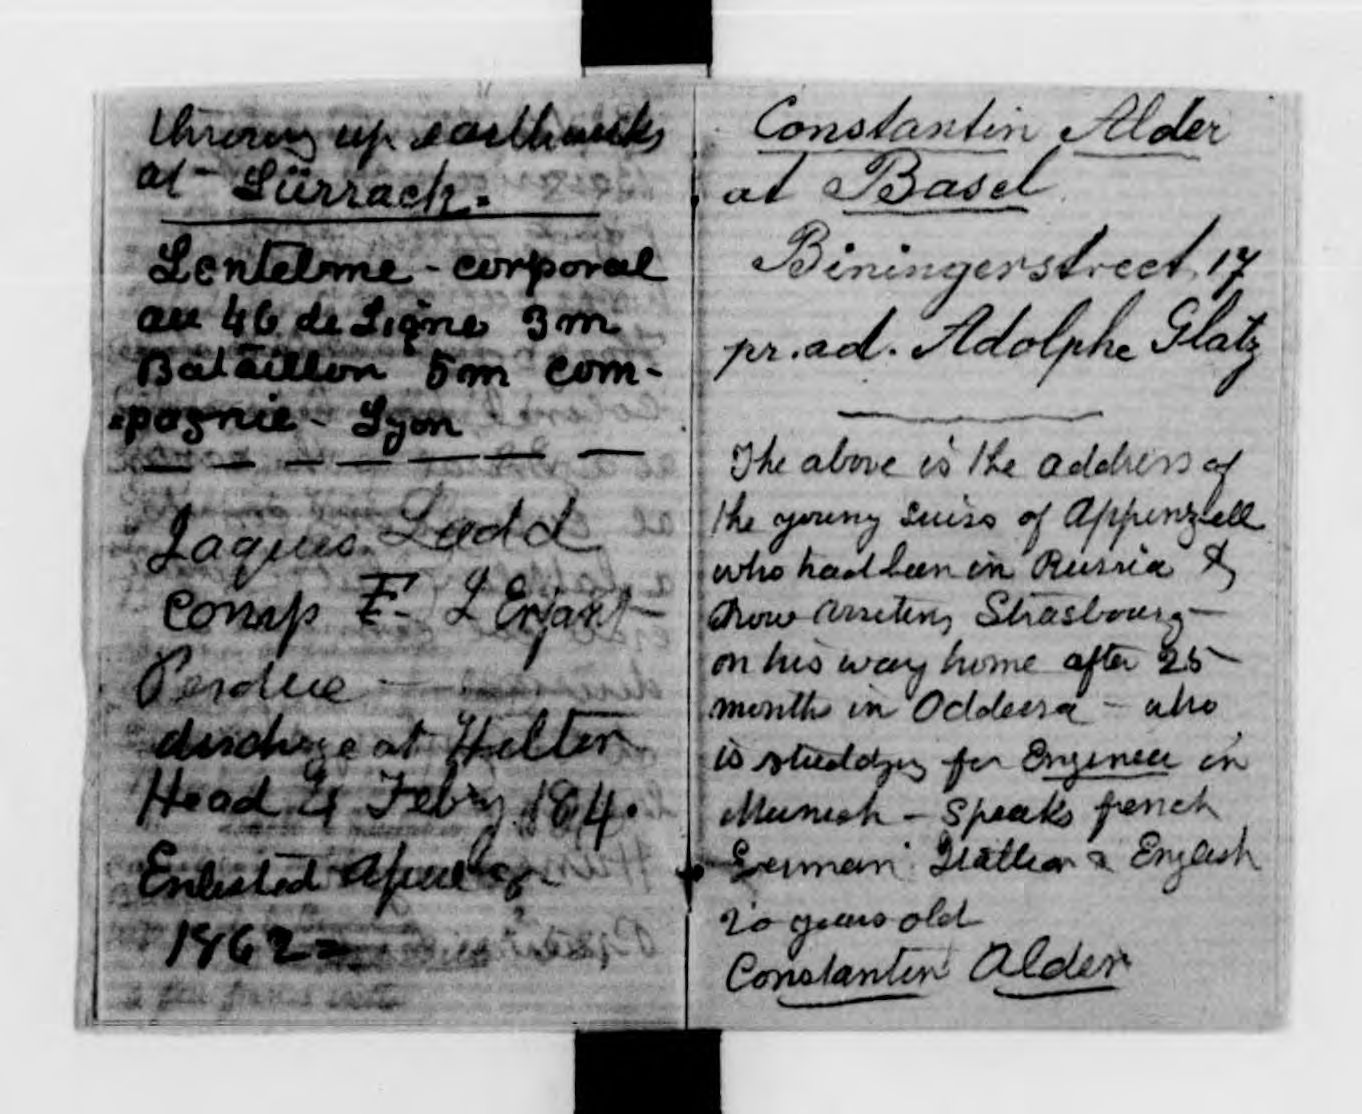 throwing up earthworks
at Lürrach.
Lentelme - corporal
au 46 de Ligne 3m
Bataillon 5m com-
pagnie - Lyon
Jaques Ladd
comp E. L'Enfant
Perdue -
discharge at Hilton
Head 4 Febry 1864.
Enlisted April
1862 =
Constantin Alder
at Basel
Biningerstreet, 17
pr. ad. Adolphe Glatz
The above is the address of
the young suiss of Appenzell
who had been in Russia &
now visiting Strasbourg -
on his way home after 25
months in Oddessa - who
is studdying for Engineer in
Munich - Speaks french
German Itallian & English
20 years old
Constantin Alder